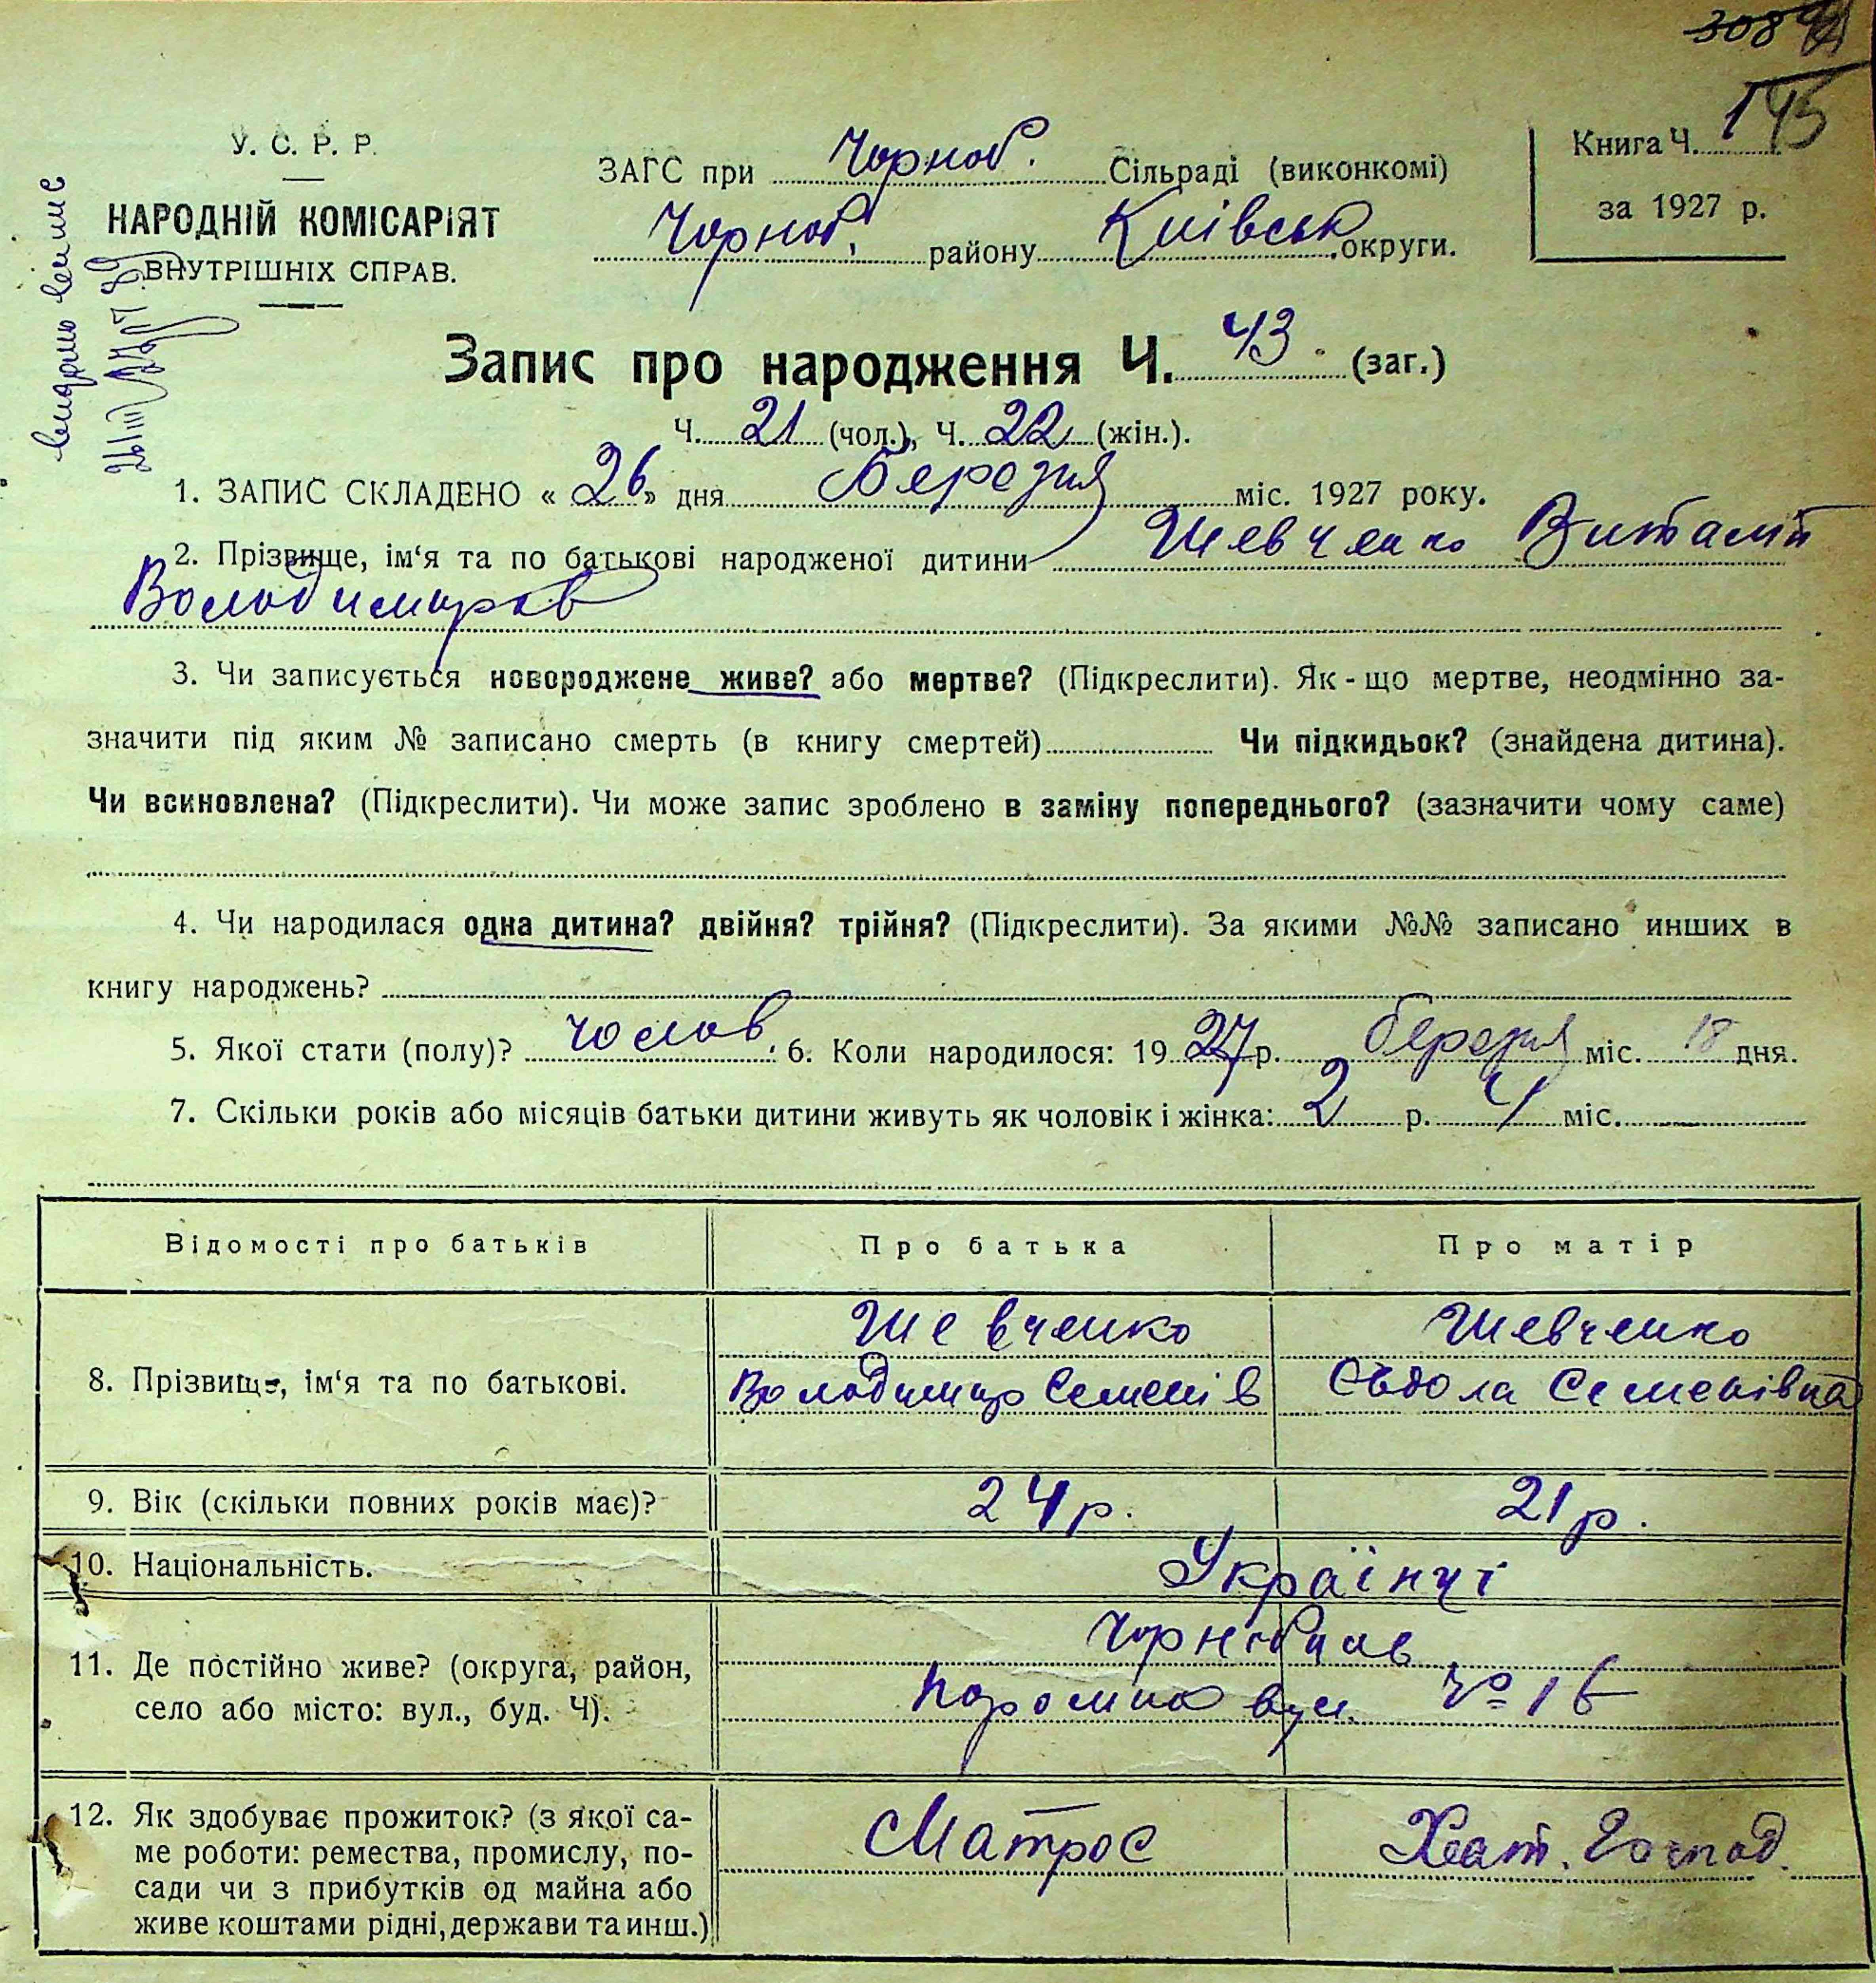 308
145
У. С. Р. Р.
НАРОДНІЙ КОМІСАРІЯТ
ВНУТРІШНІХ СПРАВ.
ЗАГС при Чорноб. Сільраді (виконкомі)
Чорноб. району Київськ округи.
Книга Ч. 1
за 1927 р.
Запис про народження Ч. 43 (заг.)
Ч. 21 (чол.), Ч. 22 (жін.).
1. ЗАПИС СКЛАДЕНО « 26 » дня Березня міс. 1927 року.
2. Прізвище, ім‘я та по батькові народженої дитини Шевченко Виталій
Володимиров
3. Чи записується новороджене живе? або мертве? (Підкреслити). Як-що мертве, неодмінно за-
значити під яким № записано смерть (в книгу смертей) Чи підкидьок? (знайдена дитина).
Чи всиновлена? (Підкреслити). Чи може запис зроблено в заміну попереднього? (зазначити чому саме)
4. Чи народилася одна дитина? двійня? трійня? (Підкреслити). За якими №№ записано инших в
книгу народжень?
5. Якої стати (полу)? чолов. 6. Коли народилося: 19 27 р. березня міс. 18 дня.
7. Скільки років або місяців батьки дитини живуть як чоловік і жінка: 2 р. 4 міс.
Відомості про батьків Про батька Про матір
8. Прізвище, ім‘я та по батькові.
Шевченко
Володимир Семенів
Шевченко
Євдола Семенівна
9. Вік (скільки повних років має)? 24 р. 21 р.
10. Національність. Українці
11. Де постійно живе? (округа, район,
село або місто: вул., буд. Ч).
Чорнобиль
вул. № 16
12. Як здобуває прожиток? (з якої са-
ме роботи: ремества, промислу, по-
сади чи з прибутків од майна або
живе коштами рідні, держави та инш.)
Матрос
Хат. Господ.